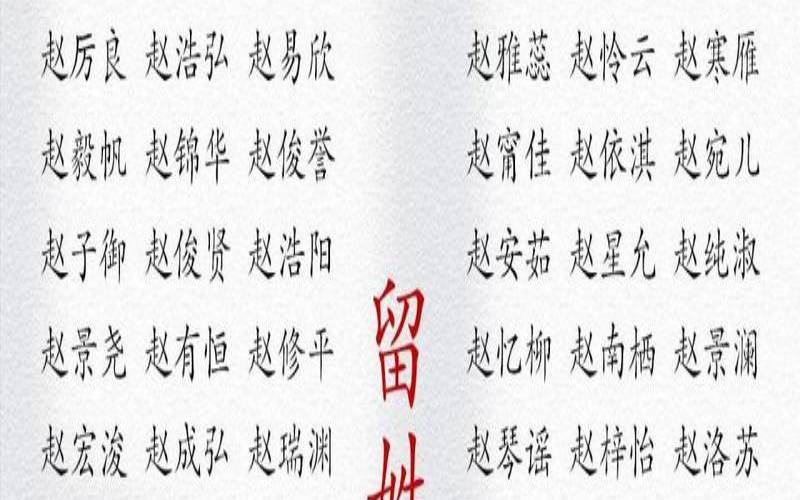 赵厉良 赵浩弘 赵易欣
赵毅帆 赵锦华 赵俊誉
赵子御 赵俊贤 赵浩阳
赵景尧 赵有恒 赵修平
赵宏浚 赵成弘 赵瑞渊
留姓
赵雅蕊 赵怜云 赵寒雁
赵甯佳 赵依淇 赵宛儿
赵安茹 赵星允 赵纯淑
赵忆柳 赵南栖 赵景澜
赵琴谣 赵梓怡 赵洛苏